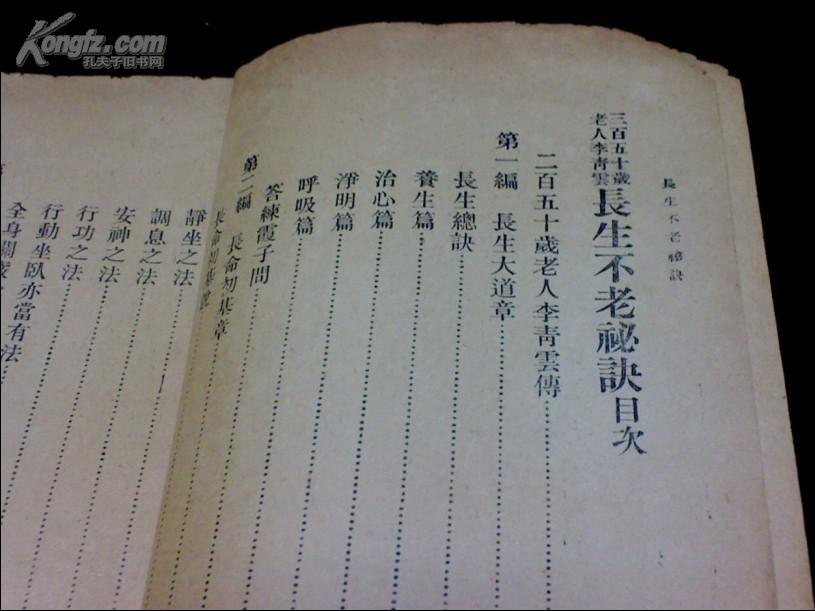 Kongfz.com
孔夫子旧书网
長生不老祕訣
三百五十歲
老人李青雲
長生不老祕訣目次
二百五十歲老人李青雲傳
第一編 長生大道章
長生總訣
養生篇
治心篇
淨明篇
呼吸篇
答練霞子問
第二編 長命初基章
長命初基
靜坐之法
調息之法
安神之法
行功之法
行動坐臥亦當有法
全身關